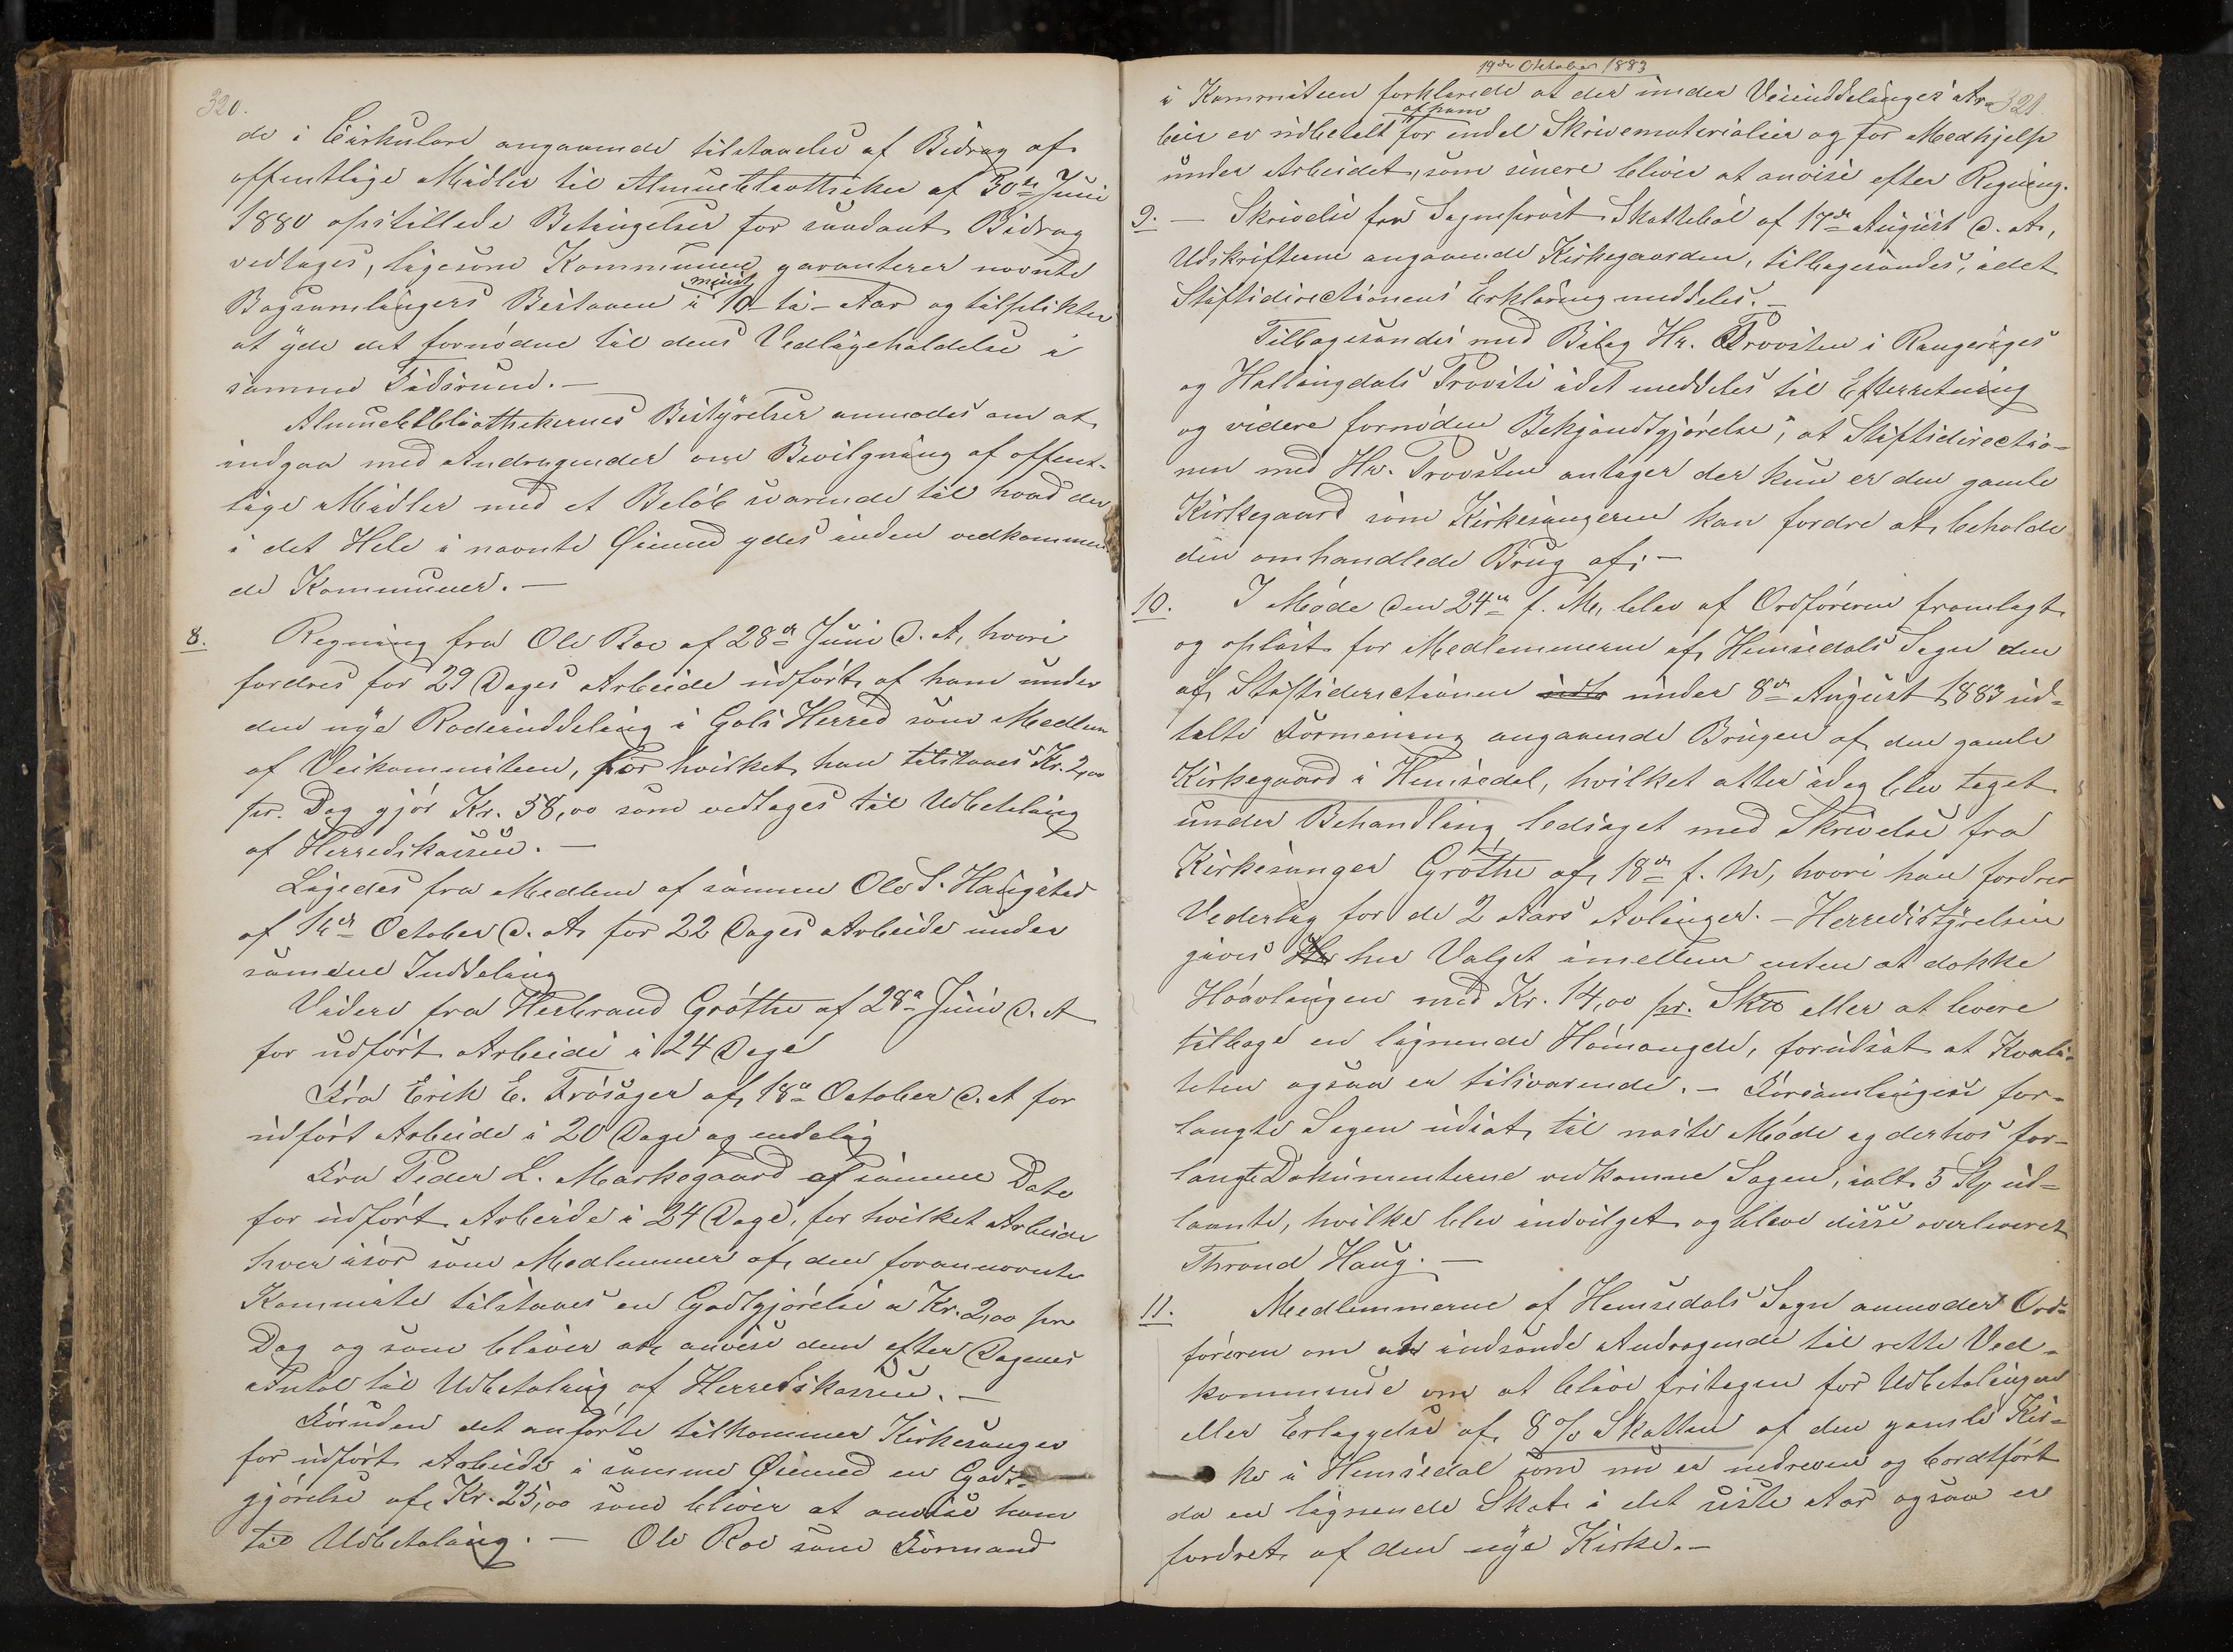 320.
de i Cirkulære angaaende tilstaaelse af Bidrag af
offentlige Midler til Almuebibliotheker af 30te Juni
1880 opstillede Betingelser for saadant Bidrag
vedtages, ligesom Kommunen garanterer nævnte
Bogsamlingers Bestaaen i mindst 10 ti Aar og tilplikter
at yde det fornødne til dens Vedligeholdelse i
samme Tidsrum. —
Almuebibliothekernes Bestyrelser anmodes om at
indgaa med Andragender om Bevilgning af offent-
lige Midler med et Beløb svarende til hvad der
i det Hele i nævnte Øiemed ydes inden vedkommen
de Kommuner. —
8. Regning fra Ole Roe af 28de Juni d. A, hvori
fordres for 29 Dages Arbeide udført af ham under
den nye Rodeinddeling i Gols Herred som Medlem
af Veikommiteen, for hvilket han tilstaaes Kr. 2,00
pr. Dag gjør Kr. 58,00 som vedtages til Udbetaling
af Herredskassen. —
Ligedes fra Medlem af samme Ole S. Haugstad
af 1ste October d. A for 22 Dages Arbeide under
samme Inddeling
Videre fra Herbrand Grøthe af 28de Juni d. A
for udført Arbeide i 24 Dage
Fra Erik E. Trøsager af 18de October d. A for
udført Arbeide i 20 Dage og endelig
Fra Peder L. Markegaard af samme Dato
for udført Arbeide i 24 Dage, for hvilket Arbeide
hver især som Medlemmer af den forannævnte
Kommite tilstaaes en Godtgjørelse a Kr. 2,00 pr
Dag og som bliver at anvise dem efter Dagenes
Antal til Udbetaling af Herredskassen. —
Foruden det anførte tilkommer Kirkesanger
for udført Arbeide i samme Øiemed en Godt-
gjørelse af Kr. 25,00 som bliver at anvise ham
til Udbetaling. — Ole Roe som Formand
19de Oktober 1883
321.
i Kommiteen forklarede at der under Veiinddelinges Ar-
beie er udbetalt af ham for endel Skrivematerialier og for Medhjelp
under Arbeidet, som senere bliver at anvise efter Regning.
9. — Skrivelse fra Sognprest Skattebøl af 17de August d. A,
Udskrifterne angaaende Kirkegaarden, tilbagesendes, idet
Stiftsdirectionens Erklæring meddeles. —
Tilbagesendes med Bilag Hr. Provsten i Ringeriges
og Hallingdals Provsti idet meddeles til Efterretning
og videre fornøden Bekjendtgjørelse, at Stiftsdirectio-
nen med Hr. Provsten antager der kun er den gamle
Kirkegaard som Kirkesangeren kan fordre at beholde
den omhandlede Brug af. —
10. I Møde den 24de f. M, blev af Ordføreren fremlagt
og oplæst for Medlemmerne af Hemsedals Sogn den
af Stiftsderectionen under 8de August 1883 ud-
talte Formening angaaende Brugen af den gamle
Kirkegaard i Hemsedal, hvilket atter idag blev taget
under Behandling ledsaget med Skrivelse fra
Kirkesanger Grøthe af 18de f. M, hvori han fordrer
Vederlag for de 2 Aars Avlinger. — Herredsstyrelsen
gives her Valget imellem enten at dække
Høavlingen med Kr. 14,00 pr. Sk# eller at levere
tilbage en lignende Hømængde, forudsat at Kvali-
teten ogsaa er tilsvarende. — Forsamlingen for-
langte Sagen udsat til næste Møde og derhos for-
langte Dokumenterne vedkomne Sagen, ialt 5 Stk ud-
laante, hvilke blev indvilget og bleve disse overleveret
Thrond Haug. —
11. Medlemmerne af Hemsedals Sogn anmoder Ord-
føreren om at indsende Andragende til rette Ved-
kommende om at blive fritagen for Udbetalingen
eller Erlæggelse af 8% Skatten af den gamle Kir-
ke i Hemsedal som nu er nedreven og bordtført
da en lignende Skat i det siste Aar ogsaa er
fordret af den nye Kirke. —